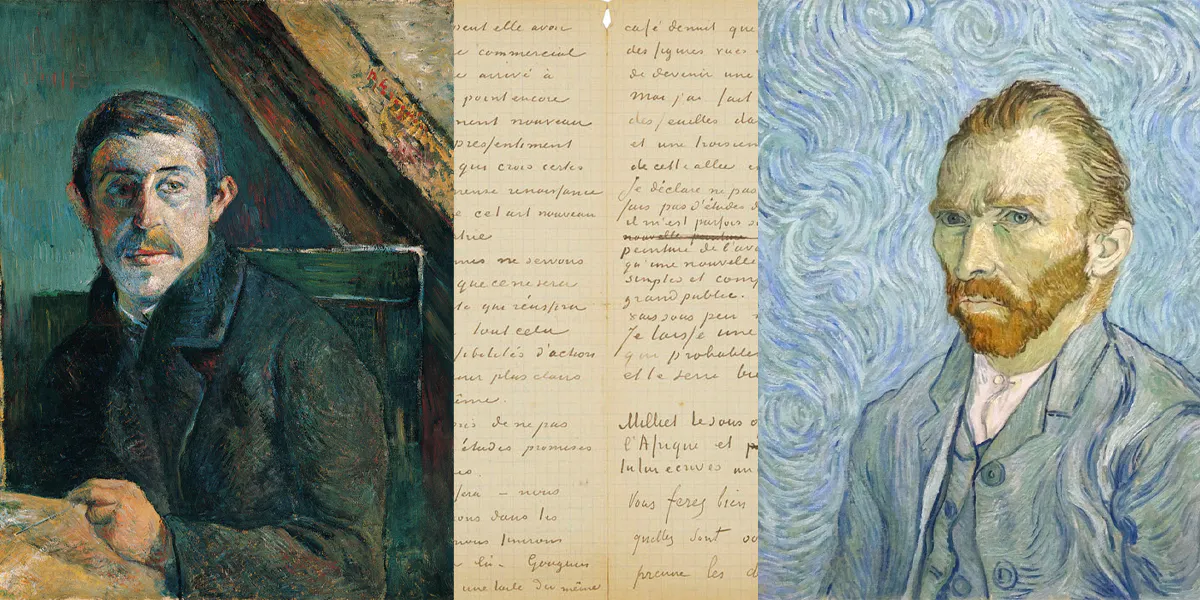 peut elle avoir
commercial
arrivé à
point encore
ment nouveau
pressentiment
qui crois certes
mense renaissance
e cet art nouveau
mes ne servons
que ce ne sera
te que réussira
tout cela
sibilités d'action
our plus clairs
ême.
de ne pas
études promises
fera – nous
ons dans les
nous finirons
là – Gauguin
une toile du même
café de nuit que
des figures vues
de devenir une
Moi j'ai fait
des feuilles da
et une troisiem
de cette allée e
Je déclare ne pas
fais pas d'études d
il m'est parfois
nouvelle peinture
peinture de l'ave
qu'une nouvelle
simples et com
grand public.
vais sous peu
Je laisse une
qui probable
et le serre bi
Milliet le sous o
l'Afrique et
tu lui ecrives un
Vous ferez bien
quelles sont
prenne les d